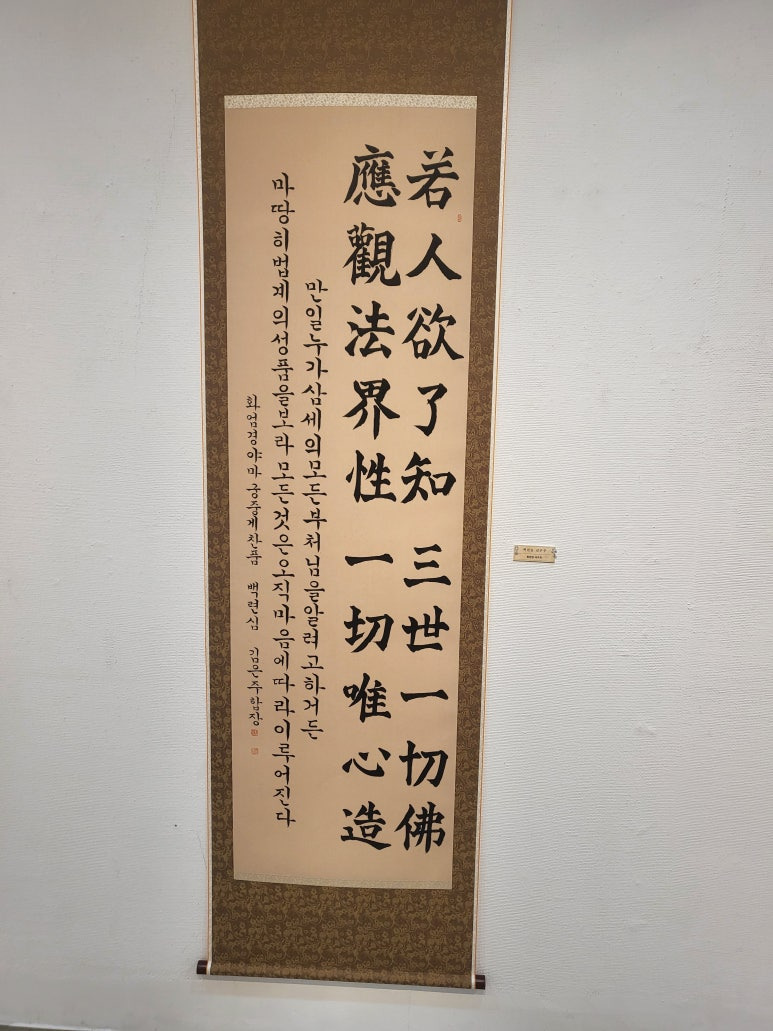 若人欲了知 三世一切佛
應觀法界性 一切唯心造
만일누가삼세의모든부처님을알려고하거든
마땅히법계의성품을보라 모든것은오직마음에따라이루어진다
화엄경야마궁중게찬품 백련심 김은주합장